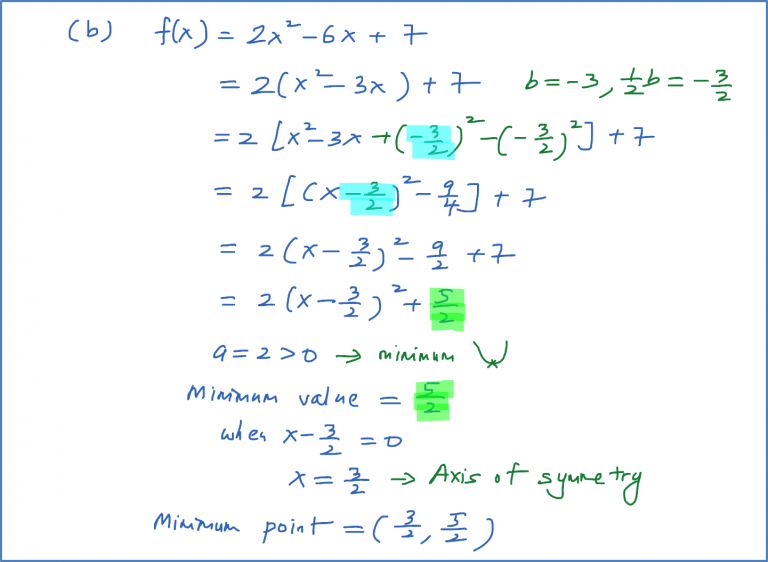 (b) f(x) = 2x² - 6x + 7
= 2(x² - 3x) + 7 b = -3, ½b = -3/2
= 2 [x² - 3x + (-3/2)² - (-3/2)²] + 7
= 2 [(x - 3/2)² - 9/4] + 7
= 2(x - 3/2)² - 9/2 + 7
= 2(x - 3/2)² + 5/2
a = 2 > 0 → minimum
Minimum value = 5/2
when x - 3/2 = 0
x = 3/2 → Axis of symmetry
Minimum point = (3/2, 5/2)